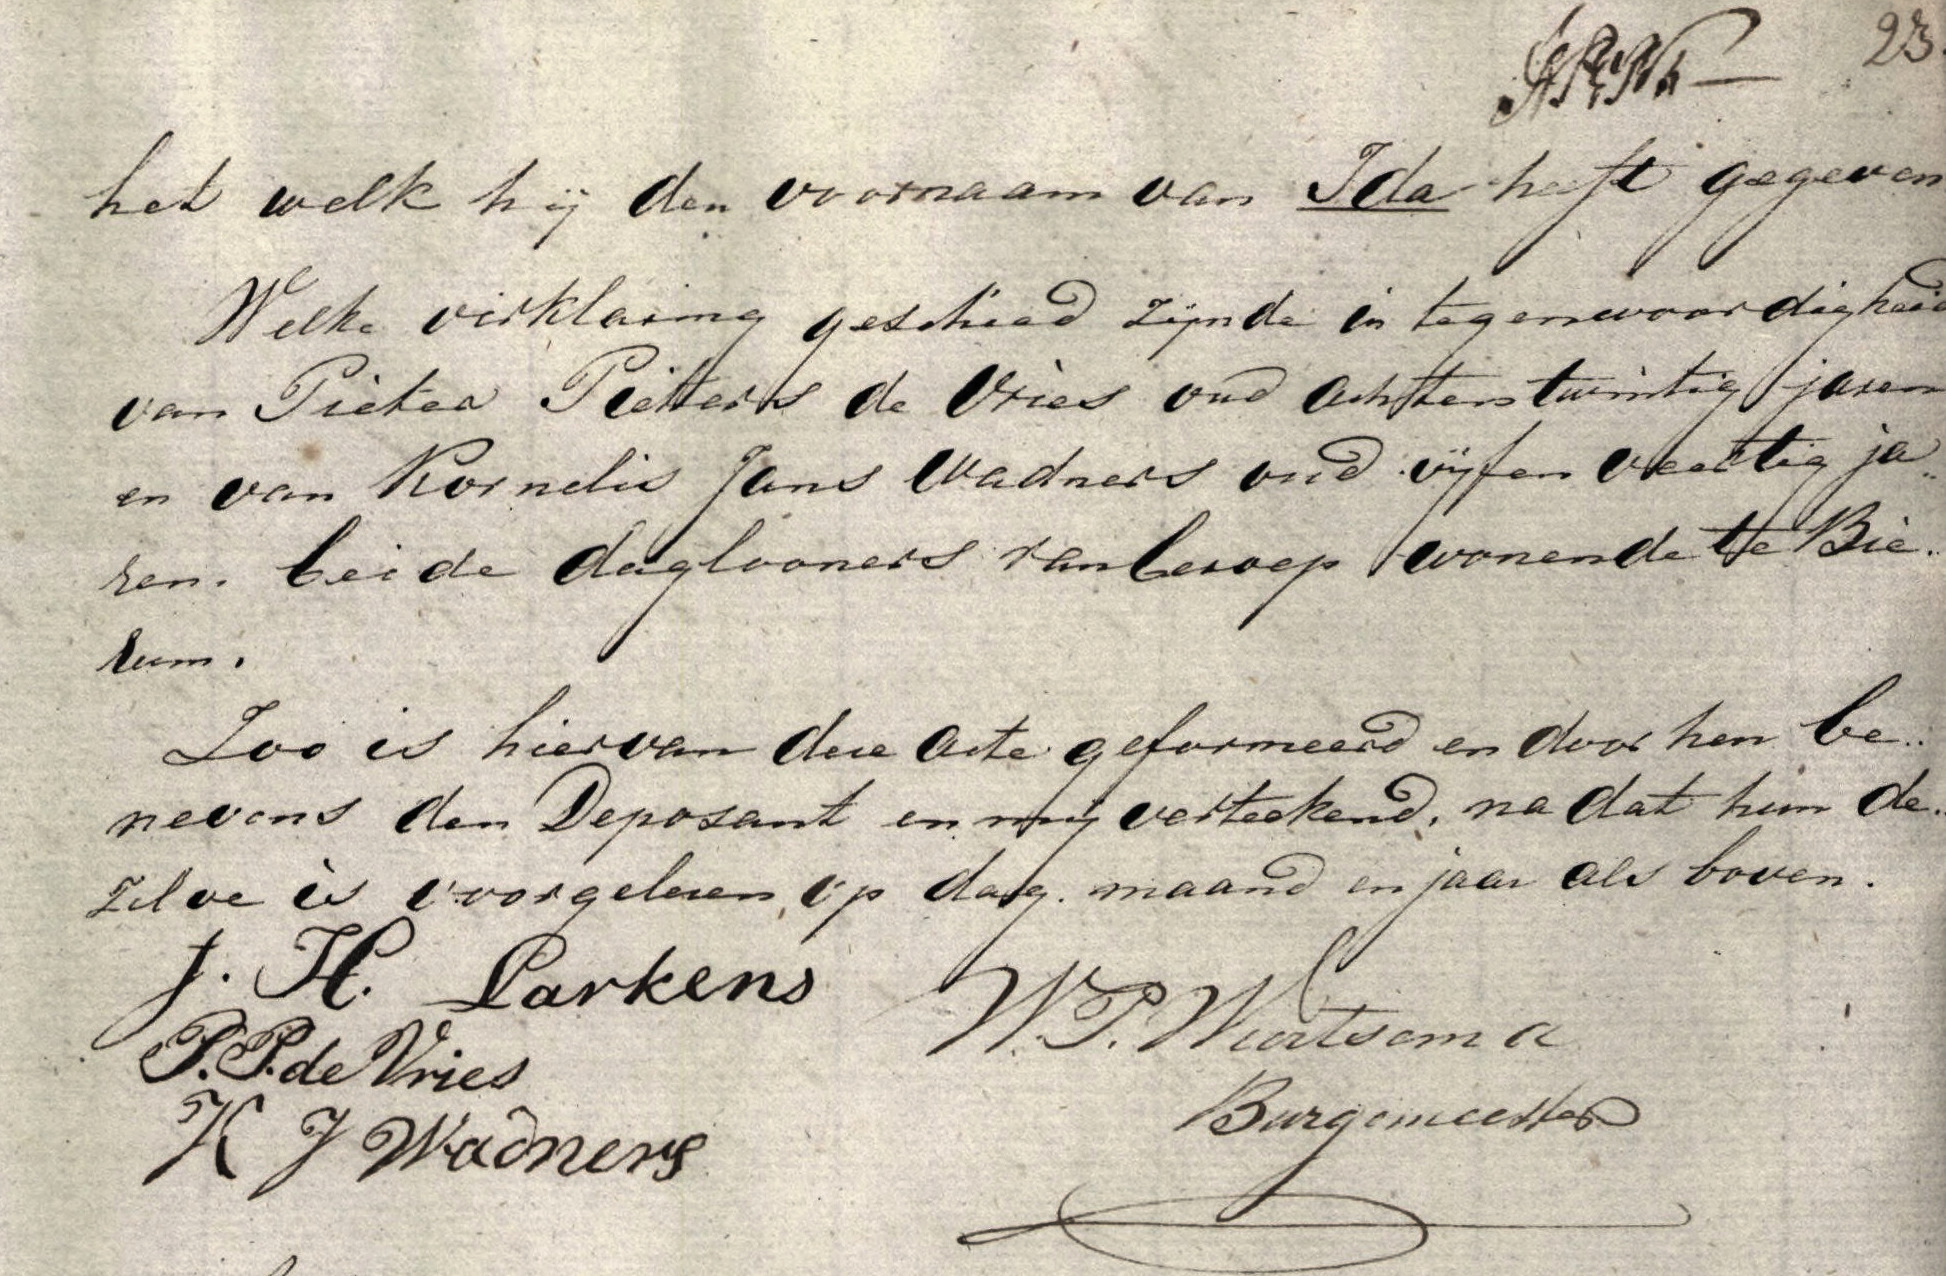 23.
het welk hij den voornaam van Ida heeft gegeven
Welke verklaring geschied zijnde in tegenwoordigheid
van Pieter Pieters de Vries oud achtentwintig jaren
en van Kornelis Jans Wadners oud vijfenveertig ja..
ren. beide daglooners van beroep wonende te Bie..
rum.
Zoo is hiervan deze acte geformeerd en door hen be..
nevens den Deposant en mij verteekend, na dat hun de..
zelve is voorgelezen op dag. maand en jaar als boven.
J. H. Larkens
W. P. Wiertsema
P. P. de Vries
Burgemeester
K J Wadners